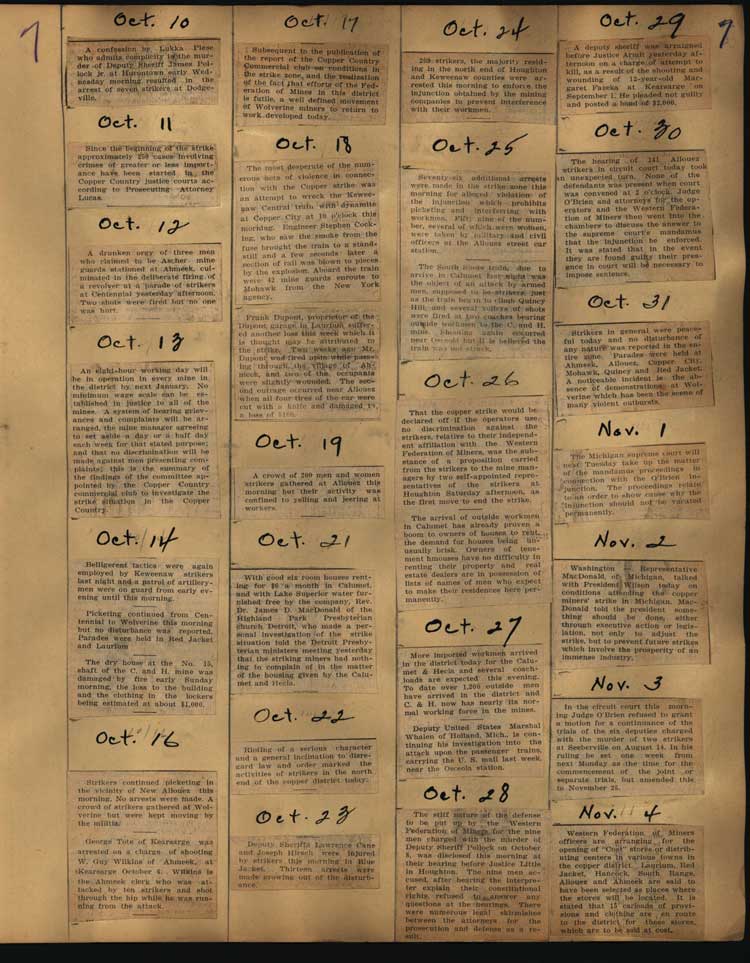 7
Oct. 10
A confession by Lukka Plese
who admits complicity in the mur-
der of Deputy Sheriff James Pol-
lock jr. at Hurontown early Wed-
nesday morning resulted in the
arrest of seven strikers at Dodge-
ville.
Oct. 11
Since the beginning of the strike
approximately 250 cases involving
crimes of greater or less import-
ance have been started in the
Copper Country justice courts ac-
cording to Prosecuting Attorney
Lucas.
Oct. 12
A drunken orgy of three men
who claimed to be Ascher mine
guards stationed at Ahmeek, cul-
minated in the deliberate firing of
a revolver at a parade of strikers
at Centennial yesterday afternoon.
Two shots were fired but no one
was hurt.
Oct. 13
An eight-hour working day will
be in operation in every mine in
the district by next January. No
minimum wage scale can be es-
tablished in justice to all of the
mines. A system of hearing griev-
ances and complaints will be ar-
ranged, the mine manager agreeing
to set aside a day or a half day
each week for that stated purpose;
and that no discrimination will be
made against men presenting com-
plaints; this is the summary of
the findings of the committee ap-
pointed by the Copper Country
commercial club to investigate the
strike situation in the Copper
Country.
Oct. 14
Belligerent tactics were again
employed by Keweenaw strikers
last night and a patrol of artillery-
men were on guard from early ev-
ening until this morning.
Picketing continued from Cen-
tennial to Wolverine this morning
but no disturbance was reported.
Parades were held in Red Jacket
and Laurium
The dry house at the No. 15,
shaft of the C. and H. mine was
damaged by fire early Sunday
morning, the loss to the building
and the clothing in the lockers
being estimated at about $1,000.
Oct. 16
Strikers continued picketing in
the vicinity of New Allouez this
morning. No arrests were made. A
crowd of strikers gathered at Wol-
verine but were kept moving by
the militia.
George Tote of Kearsarge was
arrested on a charge of shooting
W. Guy Wilkins of Ahmeek, at
Kearsarge October 6. Wilkins is
the Ahmeek clerk who was at-
tacked by ten strikers and shot
through the hip while he was run-
ning from the attack.
Oct. 17
Subsequent to the publication of
the report of the Copper Country
Commercial club on conditions in
the strike zone, and the realization
of the fact that efforts of the Fed-
eration of Mines in this district
is futile, a well defined movement
of Wolverine miners to return to
work developed today.
Oct. 18
The most desperate of the num-
erous acts of violence in connec-
tion with the Copper strike was
an attempt to wreck the Kewee-
naw Central train with dynamite
at Copper City at 10 o'clock this
morning. Engineer Stephen Cock-
ing, who saw the smoke from the
fuse brought the train to a stand-
still and a few seconds later a
section of rail was blown to pieces
by the explosion. Aboard the train
were 42 mine guards enroute to
Mohawk from the New York
agency.
Frank Dupont, proprietor of the
Dupont garage in Laurium suffer-
ed another loss this week which it
is thought may be attributed to
the strike. Two weeks ago Mr.
Dupont was fired upon while pass-
ing through the village of Ah-
meek, and two of the occupants
were slightly wounded. The sec-
ond outrage occurred near Allouez
when all four tires of the car were
cut with a knife and damaged to
a loss of $100.
Oct. 19
A crowd of 200 men and women
strikers gathered at Allouez this
morning but their activity was
confined to yelling and jeering at
workers.
Oct. 21
With good six room houses rent-
ing for $6 a month in Calumet,
and with Lake Superior water fur-
nished free by the company, Rev.
Dr. James D. MacDonald of the
Highland Park Presbyterian
church Detroit, who made a per-
sonal investigation of the strike
situation told the Detroit Presby-
terian ministers meeting yesterday
that the striking miners had noth-
ing to complain of in the matter
of the housing given by the Calu-
met and Hecla.
Oct. 22
Rioting of a serious character
and a general inclination to disre-
gard law and order marked the
activities of strikers in the north
end of the copper district today.
Oct. 23
Deputy Sheriffs Lawrence Cane
and Joseph Hirsch were injured
by strikers this morning in Blue
Jacket. Thirteen arrests were
made growing out of the disturb-
ance.
Oct. 24
209 strikers, the majority resid-
ing in the north end of Houghton
and Keweenaw counties were ar-
rested this morning to enforce the
injunction obtained by the mining
companies to prevent interference
with their workmen.
Oct. 25
Seventy-six additional arrests
were made in the strike zone this
morning for alleged violation of
the injunction which prohibits
picketing and interfering with
workmen. Fifty nine of the num-
ber, several of which were women,
were taken by military and civil
officers at the Allouez street car
station.
The South Shore train, due to
arrive in Calumet last night was
the object of an attack by armed
men, supposed to be strikers, just
as the train began to climb Quincy
Hill, and several volleys of shots
were fired at two coaches bearing
outside workmen to the C. and H.
mine. Shooting again occurred
near Osceola but it is believed the
train was not struck.
Oct. 26
That the copper strike would be
declared off if the operators use
no discrimination against the
strikers, relative to their independ-
ent affiliation with the Western
Federation of Miners, was the sub-
stance of a proposition carried
from the strikers to the mine man-
agers by two self-appointed repre-
sentatives of the strikers at
Houghton Saturday afternoon, as
the first move to end the strike.
The arrival of outside workmen
in Calumet has already proven a
boom to owners of houses to rent,
the demand for houses being un-
usually brisk. Owners of tene-
ment hmouses have no difficulty in
renting their property and real
estate dealers are in possession of
lists of names of men who expect
to make their residences here per-
manently.
Oct. 27
More imported workmen arrived
in the district today for the Calu-
met & Hecla and several coach-
loads are expected this evening.
To date over 1,200 outside men
have arrived in the district and
C. & H. now has nearly its nor-
mal working force in the mines.
Deputy United States Marshal
Whalen of Holland, Mich., is con-
tinuing his investigation into the
attack upon the passenger trains,
carrying the U. S. mail last week,
near the Osceola station.
Oct. 28
The stiff nature of the defense
to be put up by the Western
Federation of Mines for the nine
men charged with the murder of
Deputy Sheriff Pollock on October
8, was disclosed this morning at
their hearing before Justice Little
in Houghton. The nine men ac-
cused, after hearing the interpre-
ter explain their constitutional
rights, refused to answer any
questions at the hearings. There
were numerous legal skirmishes
between the attorneys for the
prosecution and defense as a re-
sult.
Oct. 29
7
A deputy sheriff was arraigned
before Justice Armit yesterday af-
ternoon on a charge of attempt to
kill, as a result of the shooting and
wounding of 12-year-old Mar-
garet Fazeka at Kearsarge on
September 1. He pleaded not guilty
and posted a bond of $2,000.
Oct. 30
The hearing of 141 Allouez
strikers in circuit court today took
an unexpected turn. None of the
defendants was present when court
was convened at 2 o'clock. Judge
O'Brien and attorneys for the op-
erators and the Western Federa-
tion of Miners then went into the
chambers to discuss the answer to
the supreme court's mandamus
that the injunction be enforced.
It was stated that in the event
they are found guilty their pres-
ence in court will be necessary to
impose sentence.
Oct. 31
Strikers in general were peace-
ful today and no disturbance of
any nature was reported in the en-
tire zone. Parades were held at
Ahmeek, Allouez, Copper City,
Mohawk, Quincy and Red Jacket.
A noticeable incident is the ab-
sence of demonstrations at Wol-
verine which has been the scene of
many violent outbursts.
Nov. 1
The Michigan supreme court will
next Tuesday take up the matter
of the mandamus proceedings in
connection with the O'Brien in-
junction. The proceedings relate
to an order to show cause why the
injunction should not be vacated
permanently.
Nov. 2
Washington Representative
MacDonald, of Michigan, talked
with President Wilson today on
conditions attending the copper
miners' strike in Michigan. Mac-
Donald told the president some-
thing should be done, either
through executive action or legis-
lation, not only to adjust the
strike, but to prevent future strikes
which involve the prosperity of an
immense industry.
Nov. 3
In the circuit court this morn-
ing Judge O'Brien refused to grant
a motion for a continuance of the
trials of the six deputies charged
with the murder of two strikers
at Seeberville on August 14. In his
ruling he set one week from
next Monday as the time for the
commencement of the joint or
separate trials, but amended this
to November 25.
Nov. 4
Western Federation of Miners
officers are arranging for the
opening of "Cost" stores or distrib-
uting centers in various towns in
the copper district. Laurium, Red
Jacket, Hancock, South Range,
Allouez and Ahmeek are said to
have been selected as places where
the stores will be located. It is
stated that 15 carloads of provi-
sions and clothing are en route
to the district for those stores,
which are to be sold at cost.